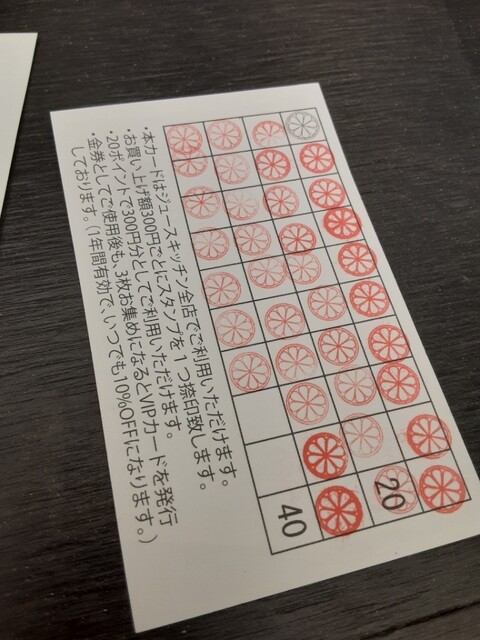 ・本カードはジュースキッチン全店でご利用いただけます。
・お買い上げ額300円ごとにスタンプを1つ捺印致します。
・20ポイントで300円分としてご利用いただけます。
・金券としてご使用後も、3枚お集めになるとVIPカードを発行
しております。(1年間有効で、いつでも10%OFFになります。)
20
40